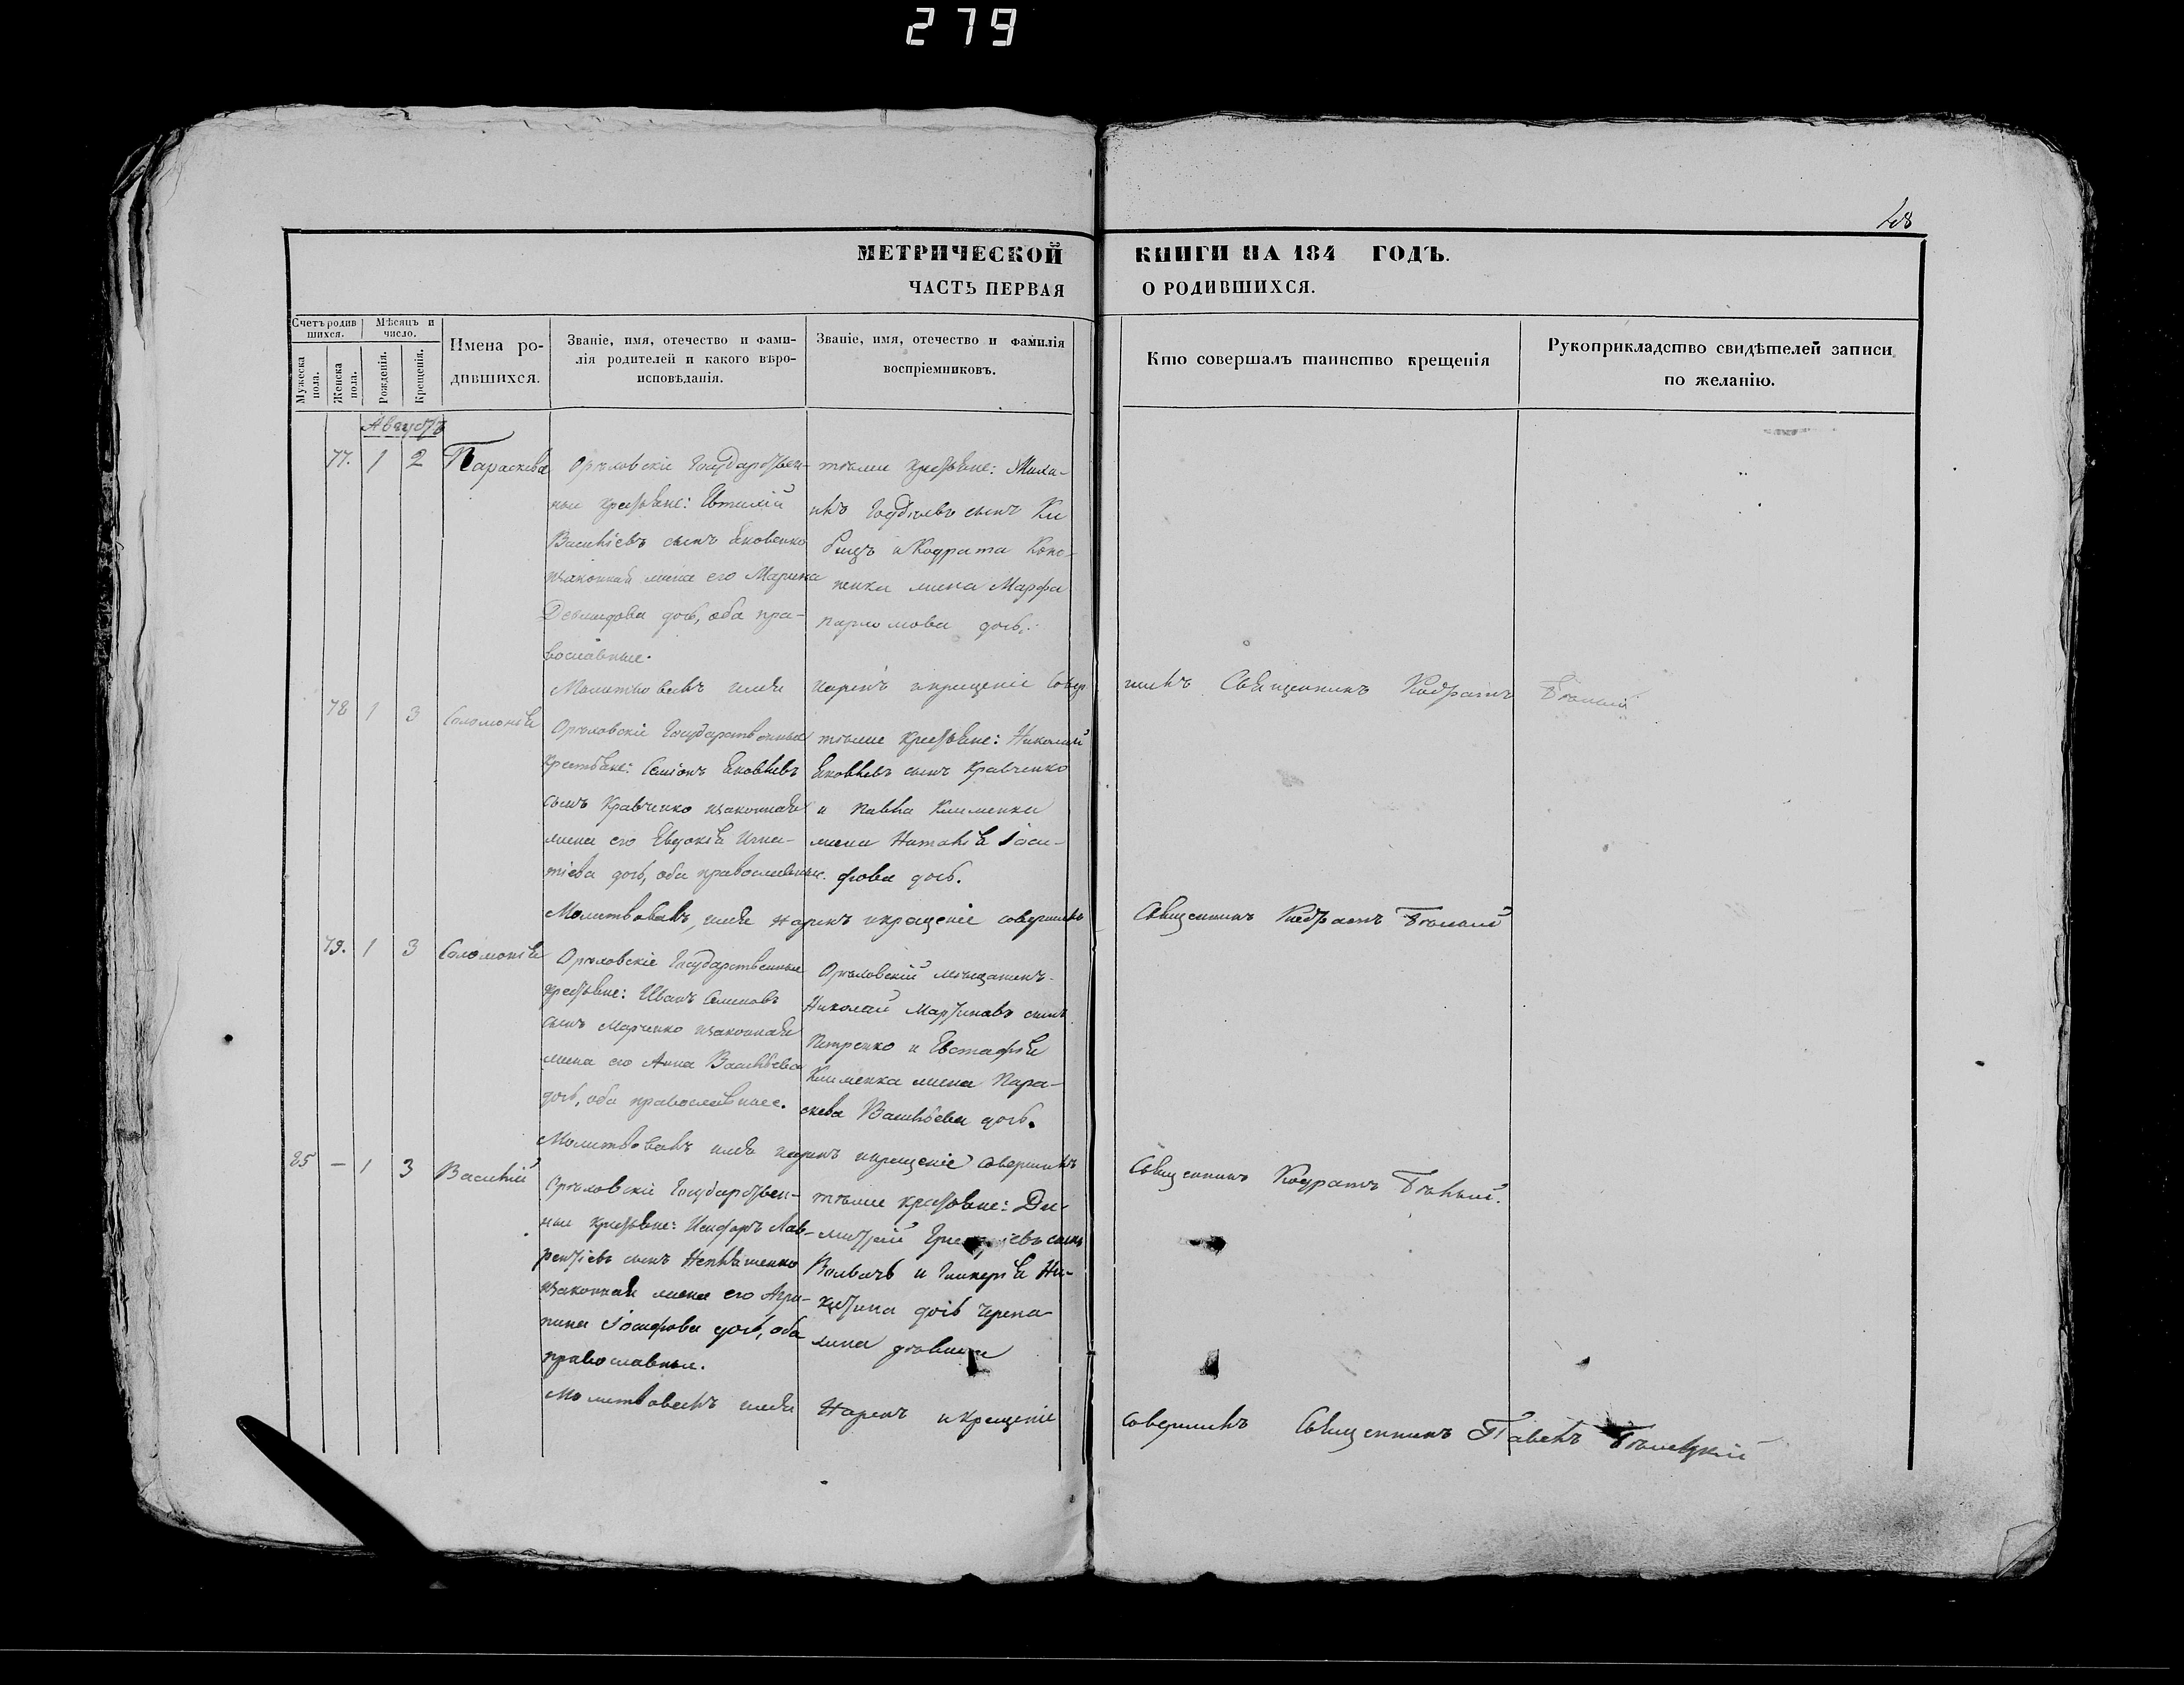 279
48
МЕТРИЧЕСКОЙ КНИГИ НА 184 ГОДЪ.
ЧАСТЬ ПЕРВАЯ О РОДИВШИХСЯ.
Счетъ родившихся.
Мужеска пола.
Женска пола.
Мѣсяцъ и число.
Рожденія.
Крещенія.
Имена родившихся.
Званіе, имя, отечество и фамилія родителей и какого вѣроисповѣданія.
Званіе, имя, отечество и фамилія воспріемниковъ.
Кто совершалъ таинство крещенія
Рукоприкладство свидѣтелей записи по желанію.
Августъ
77. 1 2 Параскева
Орѣловскіе Государствен-
ные крестьяне:
Василіевъ сынъ Яковенко
изаконная жена его Марина
Демидова дочь, оба пра-
вославные.
тѣже крестьяне: Миха-
илъ сынъ
и Кодрата Коно-
ненка жена Марфа
дочь.
Молитвовалъ имя нарекъ икрещеніе совер
шилъ Священникъ Кодратъ
78 1 3 Соломонія
Орѣловскіе Государственные
крестьяне: Семіонъ Яковлевъ
сынъ Кравченко изаконная
жена его Евдокія Игна-
тіева дочь, оба православные.
тѣже крестьяне: Николай
Яковлевъ сынъ Кравченко
и Павла Клименка
жена Наталія Іоси-
фова дочь.
Молитвовалъ, имя нарекъ икрещеніе совершилъ Священникъ Кодратъ
79. 1 3 Соломонія
Орѣловскіе Государственные
крестьяне: Иванъ Семеновъ
сынъ Марченко изаконная
жена его Анна Васильева
дочь, оба православные.
Орѣловскій мѣщанинъ
Николай Мартиновъ сынъ
Петренко и Евстафія
Клименка жена Пара-
скева Васильева дочь.
Молитвовалъ имя нарекъ икрещеніе совершилъ Священникъ Кодратъ
85 — 1 3 Василій
Орѣловскіе Государствен-
ные крестьяне: Исидоръ Лав-
рентіевъ сынъ
изаконная жена его Агри-
пина Іосифова дочь, оба
православные.
тѣже крестьяне: Ди-
митрій сынъ
и Гликерія Ни-
китина дочь
дѣвица
Молитвовалъ имя Нарекъ икрещеніе совершилъ Священникъ Павелъ Бѣлецкій